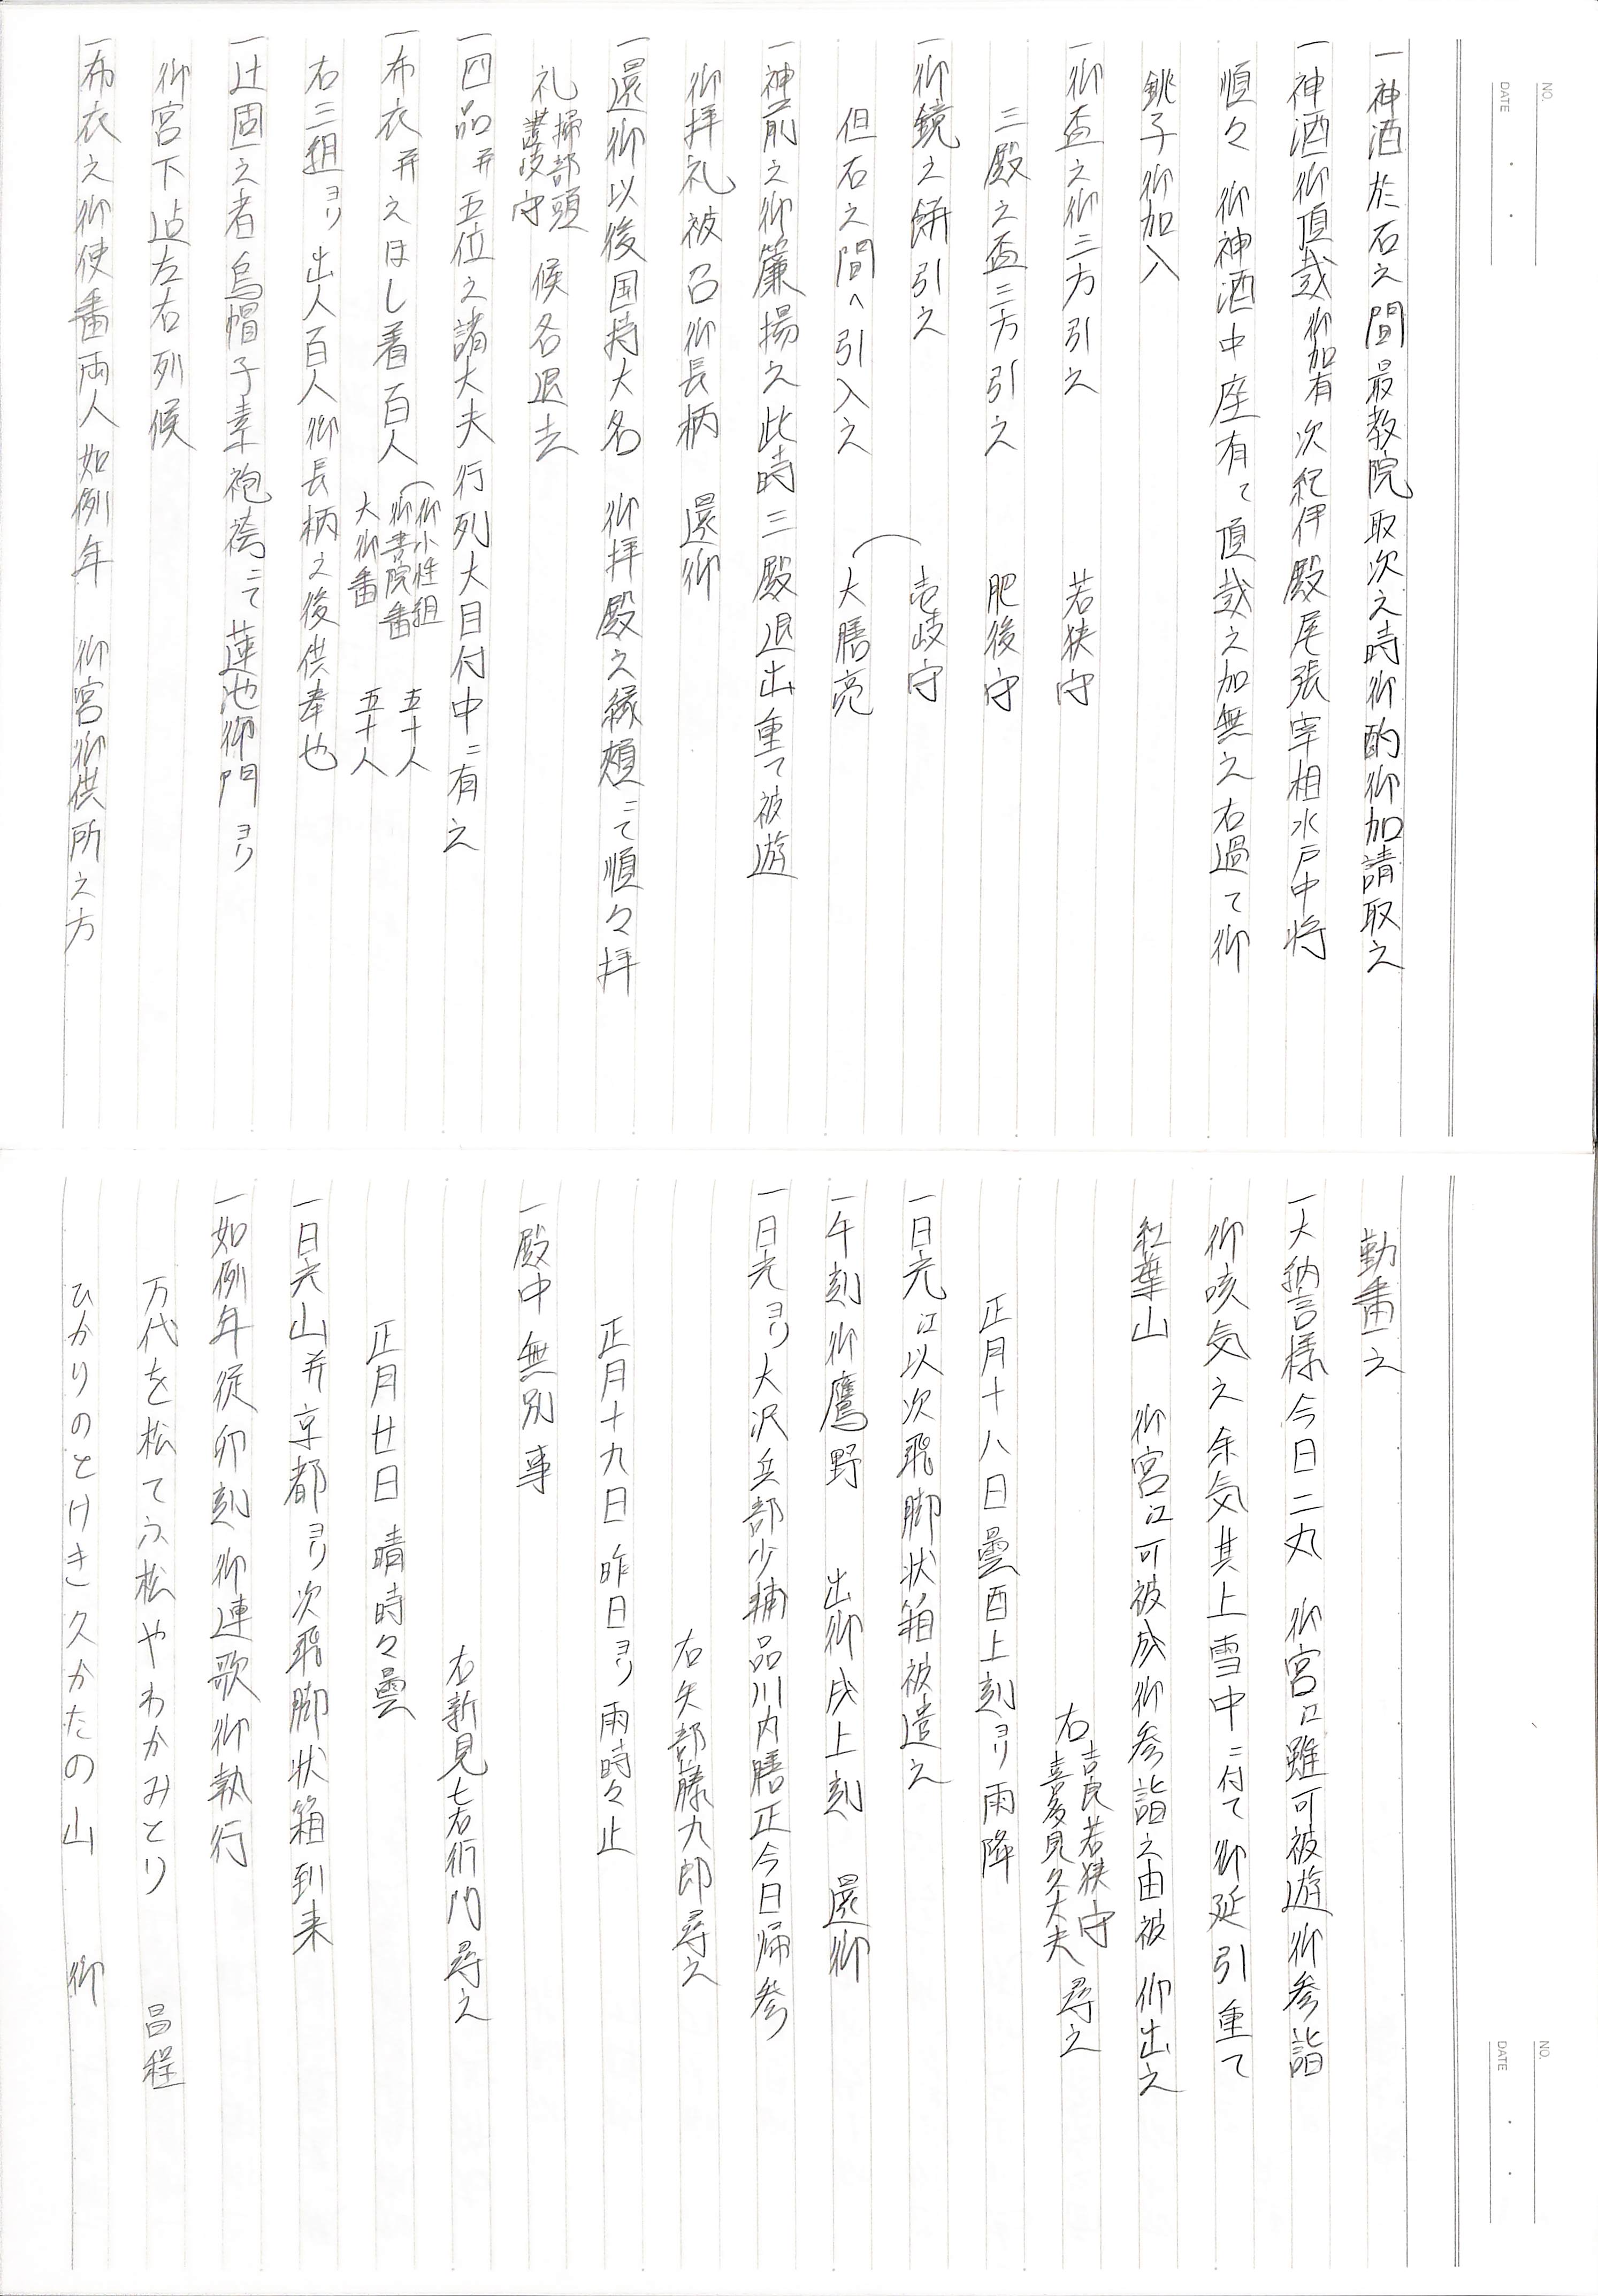 NO.
DATE
一神酒於石之間最教院取次之時御酌御加請取之
一神酒御頂戴御加有次紀伊殿尾張宰相水戸中将
順々御神酒中座有て頂戴之加無之右過て御
銚子御加入
一御盃之御三方引之　若狭守
三殿之盃三方引之　肥後守
一御鏡之餅引之　壱岐守
但石之間へ引入之　大膳亮
一神前之御簾揚之此時三殿退出重て被遊
御拝礼被召御長柄　還御
一還御以後国持大名　御拝殿之縁頬ニて順々拝
礼掃部頭讃岐守候各退去
一四品并五位之諸大夫行列大目付中ニ有之
一布衣并えほし着百人　御小性組　御書院番　五十人　大御番　五十人
右三組ゟ出人百人御長柄之後供奉也
一辻固之者烏帽子素袍袴ニて蓮池御門ゟ
御宮下迄左右列候
一布衣之御使番両人如例年　御宮御供所之方
NO.
DATE
勤番之
一大納言様今日二丸　御宮江雖可被遊御参詣
御咳気之余気其上雪中ニ付て御延引重て
紅葉山　御宮江可被成御参詣之由被　仰出之
右吉良若狭守　喜多見久大夫　尋之
正月十八日曇酉上刻ゟ雨降
一日光江以次飛脚状箱被遣之
一午刻御鷹野　出御成上刻　還御
一日光ゟ大沢兵部少輔品川内膳正今日帰参
右矢部藤九郎尋之
正月十九日昨日ゟ雨時々止
一殿中無別事
右新見七右衛門尋之
正月廿日晴時々曇
一日光山并京都ゟ次飛脚状箱到来
一如例年従卯刻御連歌御執行
万代を松てふ松やわかみとり　昌程
ひかりのとけき久かたの山　御